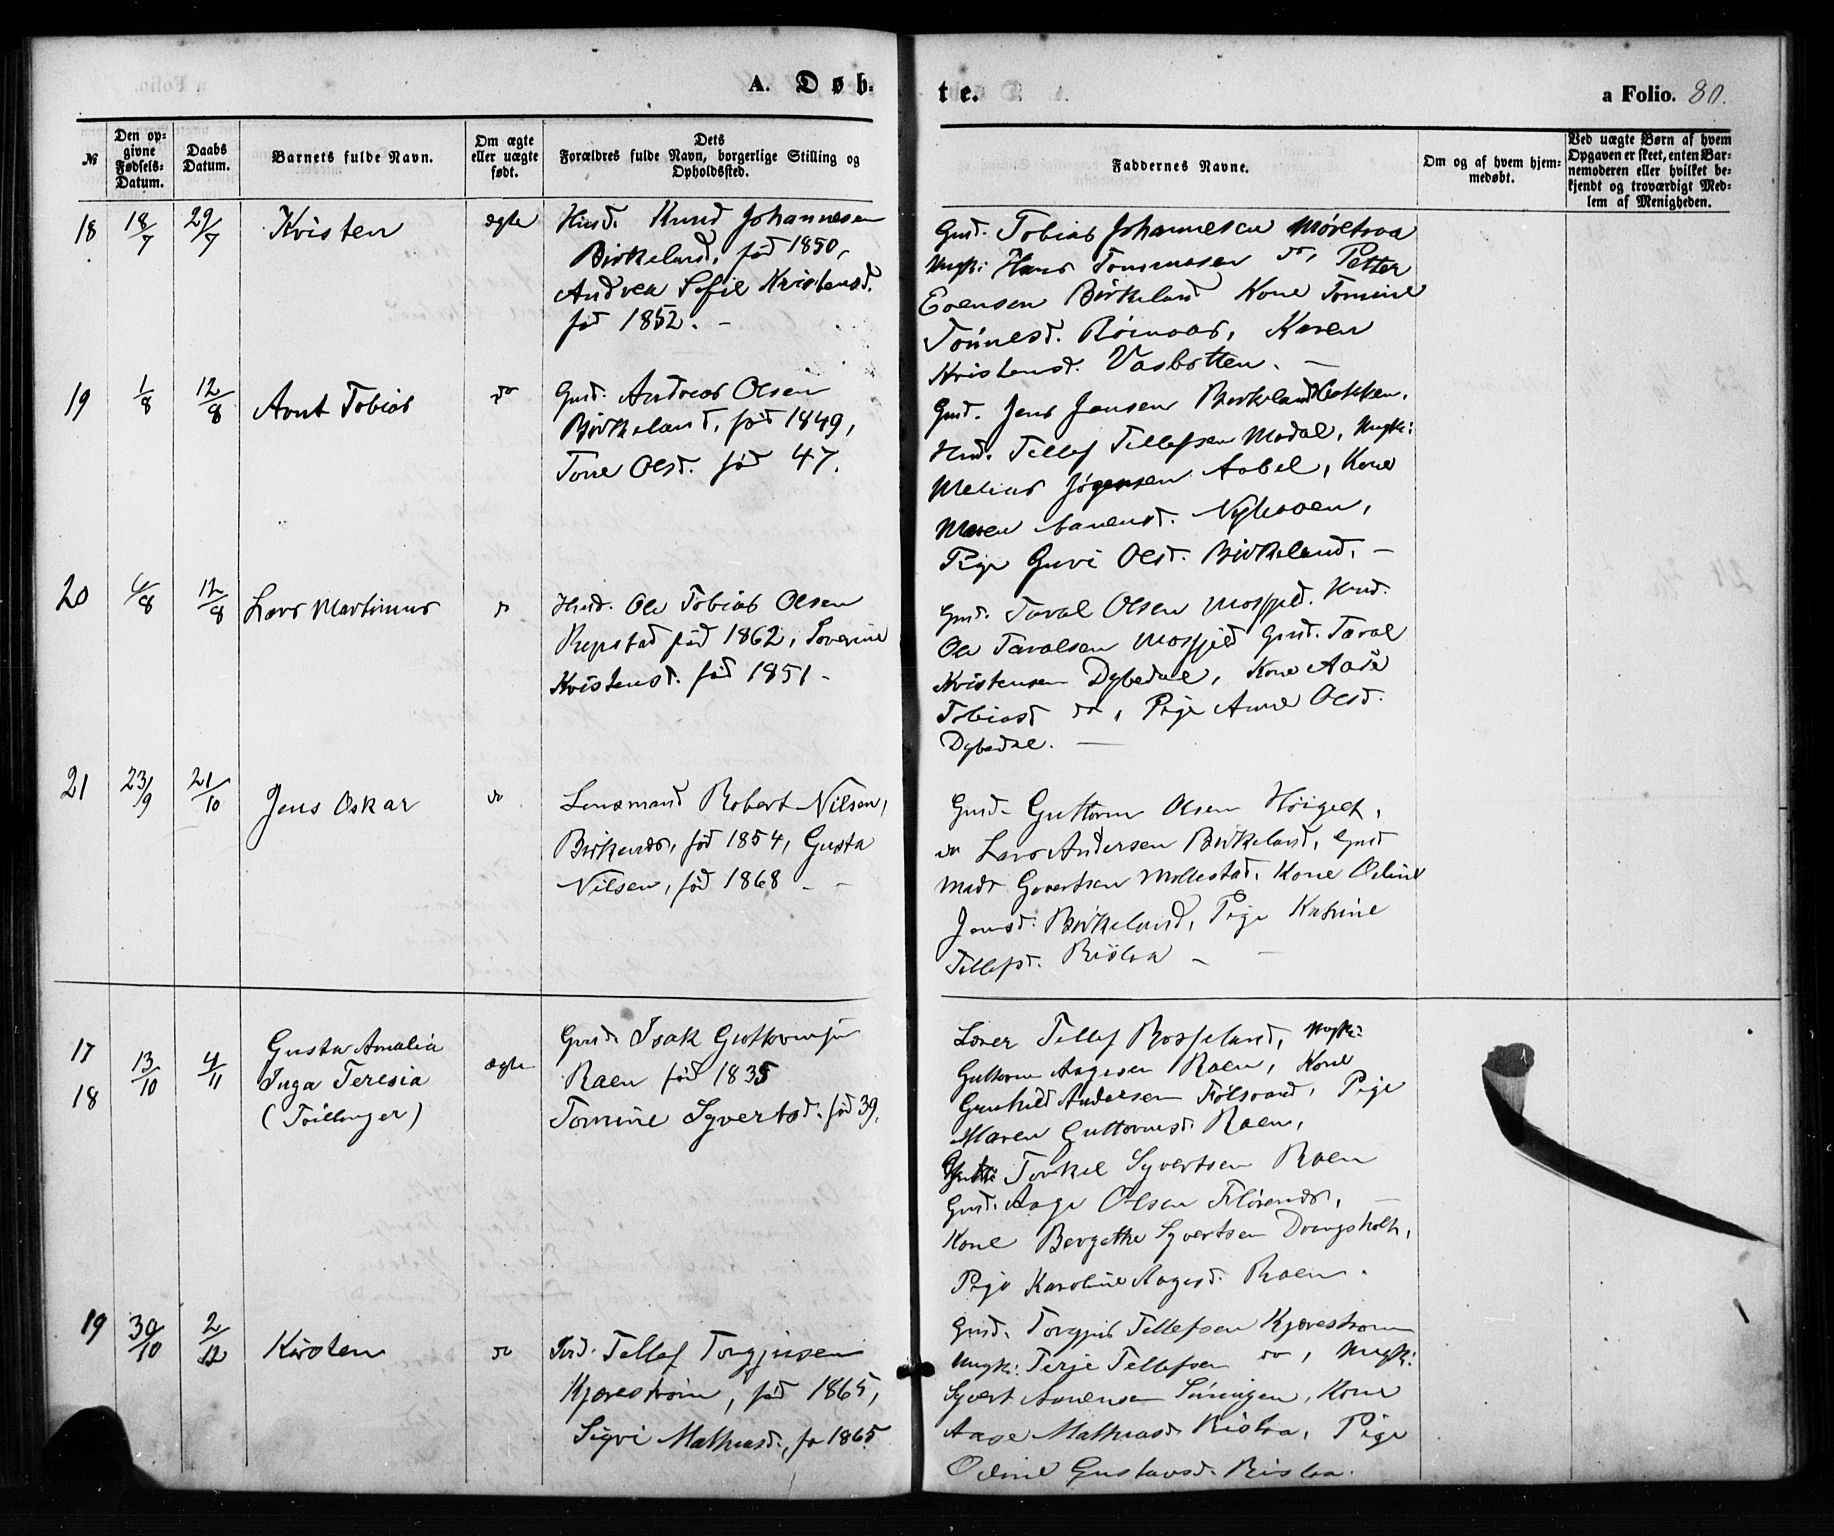 A. Døb-
te.
a Folio. 80.
№
Den op-
givne
Fødsels-
Datum.
Daabs
Datum.
Barnets fulde Navn.
Om ægte
eller uægte
født.
Dets
Forældres fulde Navn, borgerlige Stilling og
Opholdssted.
Faddernes Navne.
Om og af hvem hjem-
medøbt.
Ved uægte Børn af hvem
Opgaven er skeet, enten Bar-
nemoderen eller hvilket be-
kjendt og troværdigt Med-
lem af Menigheden.
18 18/7 29/7 Kristen ægte
Husd. Knud Johannesen
Birkeland, fød 1850,
Andrea Sofie Kristensd.
fød 1852. -
Gmd. Tobias Johannesen Møretraa
Ungk: Hans Tommasen do, Petter
Evensen Birkeland Kone Tomine
Tönnesd. Karen
Kristensd. Vasbotten. -
19 1/8 12/8 Arnt Tobias do
Gmd. Andreas Olsen
Birkeland, fød 1849,
Tone Olsd. fød 47.
Gmd. Jens Jensen Birkeland
Husd. Tellef Tellefsen Modal, Ungk:
Melius Jörgensen Aabel, Kone
Maren Aanensd.
Pige Guvi Olsd. Birkeland. -
20 4/8 12/8 Lars Martinius do
Husd. Ole Tobias Olsen
Repstad fød 1862, Severine
Kristensd. fød 1851 -
Gmd. Taral Olsen Mosfjeld. Husd.
Ole Taralsen Mosfjeld Gmd. Taral
Kristensen Dybedal, Kone Aase
Tobiasd do, Pige Anne Olsd.
Dybedal. -
21 23/9 21/10 Jens Oskar do
Lensmand Robert Nilsen,
Birkenæs, fød 1854, Gusta
Nilsen, fød 1868 - -
Gmd. Guttorm Olsen Höigilt,
do Lars Andersen Birkeland, Gmd
Mads Govertsen Mollestad. Kone Oline
Jensd. Birkeland, Pige Katrine
Tellefsd. Risløa -
17
18
13/10 4/11
Gusta Amalia
Inga Teresia
(Tvillinger)
ægte
Gmd. Isak Guttormsen
Raen fød 1835
Tomine Syvertsd. fød 39.
Lærer Tellef Bosseland, Ungk:
Guttorm Aagesen Raen, Kone
Gunhild Andersen Følsvand, Pige
Maren Guttormsd. Raen,
Torkel Syvertsen Raen
Gmd. Aage Olsen Flörenæs, -
Kone Bergethe Syvertsen Drangsholt,
Pige Karoline Aagesd. Raen.
19 30/10 2/12 Kirsten do
Tellef Torgjusen
Kjærestrøm, fød 1865,
Sigvi Mathiasd., fø 1865
Gmd. Torgjus Tellefsen Kjærestrøm
Ungk: Terje Tellefsen do, Ungk:
Syvert Aanensen Kone
Aase Mathiasd Risløa, Pige
Oline Gustavsd. Risløa.